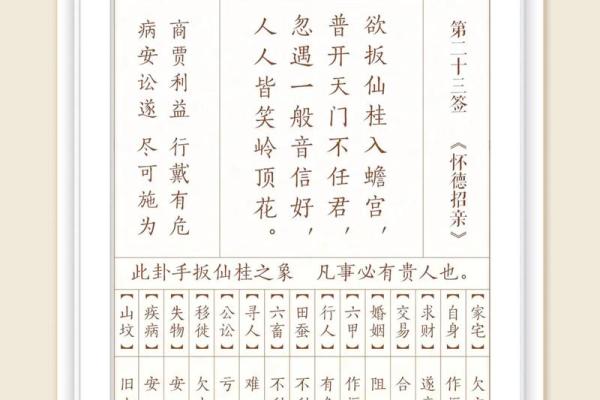 第二十三签 《怀德招亲》
欲扳仙桂入蟾宫，
普开天门不任君，
忽遇一般音信好，
人人皆笑岭顶花。
商贾利益 行戴有危
病安讼遂 尽可施为
此卦手扳仙桂之象 凡事必有贵人也。
【家宅】 欠
【自身】 作
【求财】 遂
【交易】 合
【婚姻】 阻
【六甲】 作
【行人】 有
【田蚕】 不
【六畜】 不
【寻人】 难
【公讼】 亏
【移徙】 欠
【失物】 安
【疾病】 安
【山坟】 旧